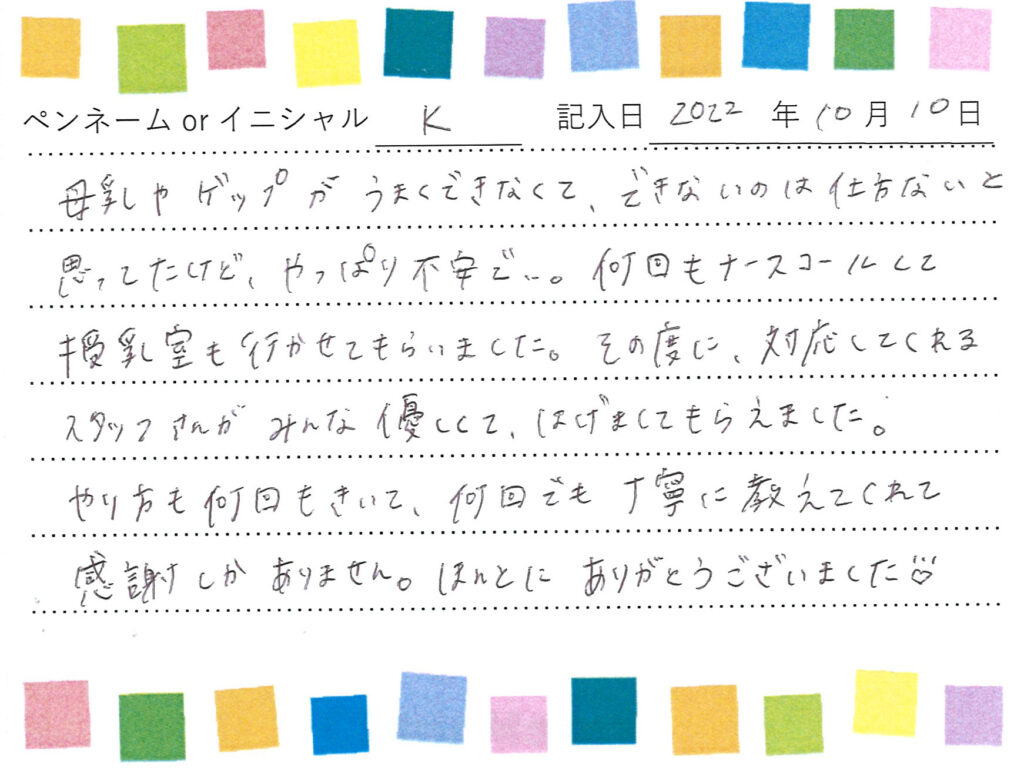 ペンネーム or イニシャル K 記入日 2022 年 10 月 10 日
母乳や ゲップが うまくできなくて、できないのは 仕方ないと
思ってたけど、やっぱり 不安で…。何回もナースコールして
授乳室も行かせてもらいました。その度に、対応してくれる
スタッフさんが みんな 優しくて、はげましてもらえました。
やり方も何回もきいて、何回でも 丁寧に教えてくれて
感謝しか ありません。ほんとに ありがとうございました